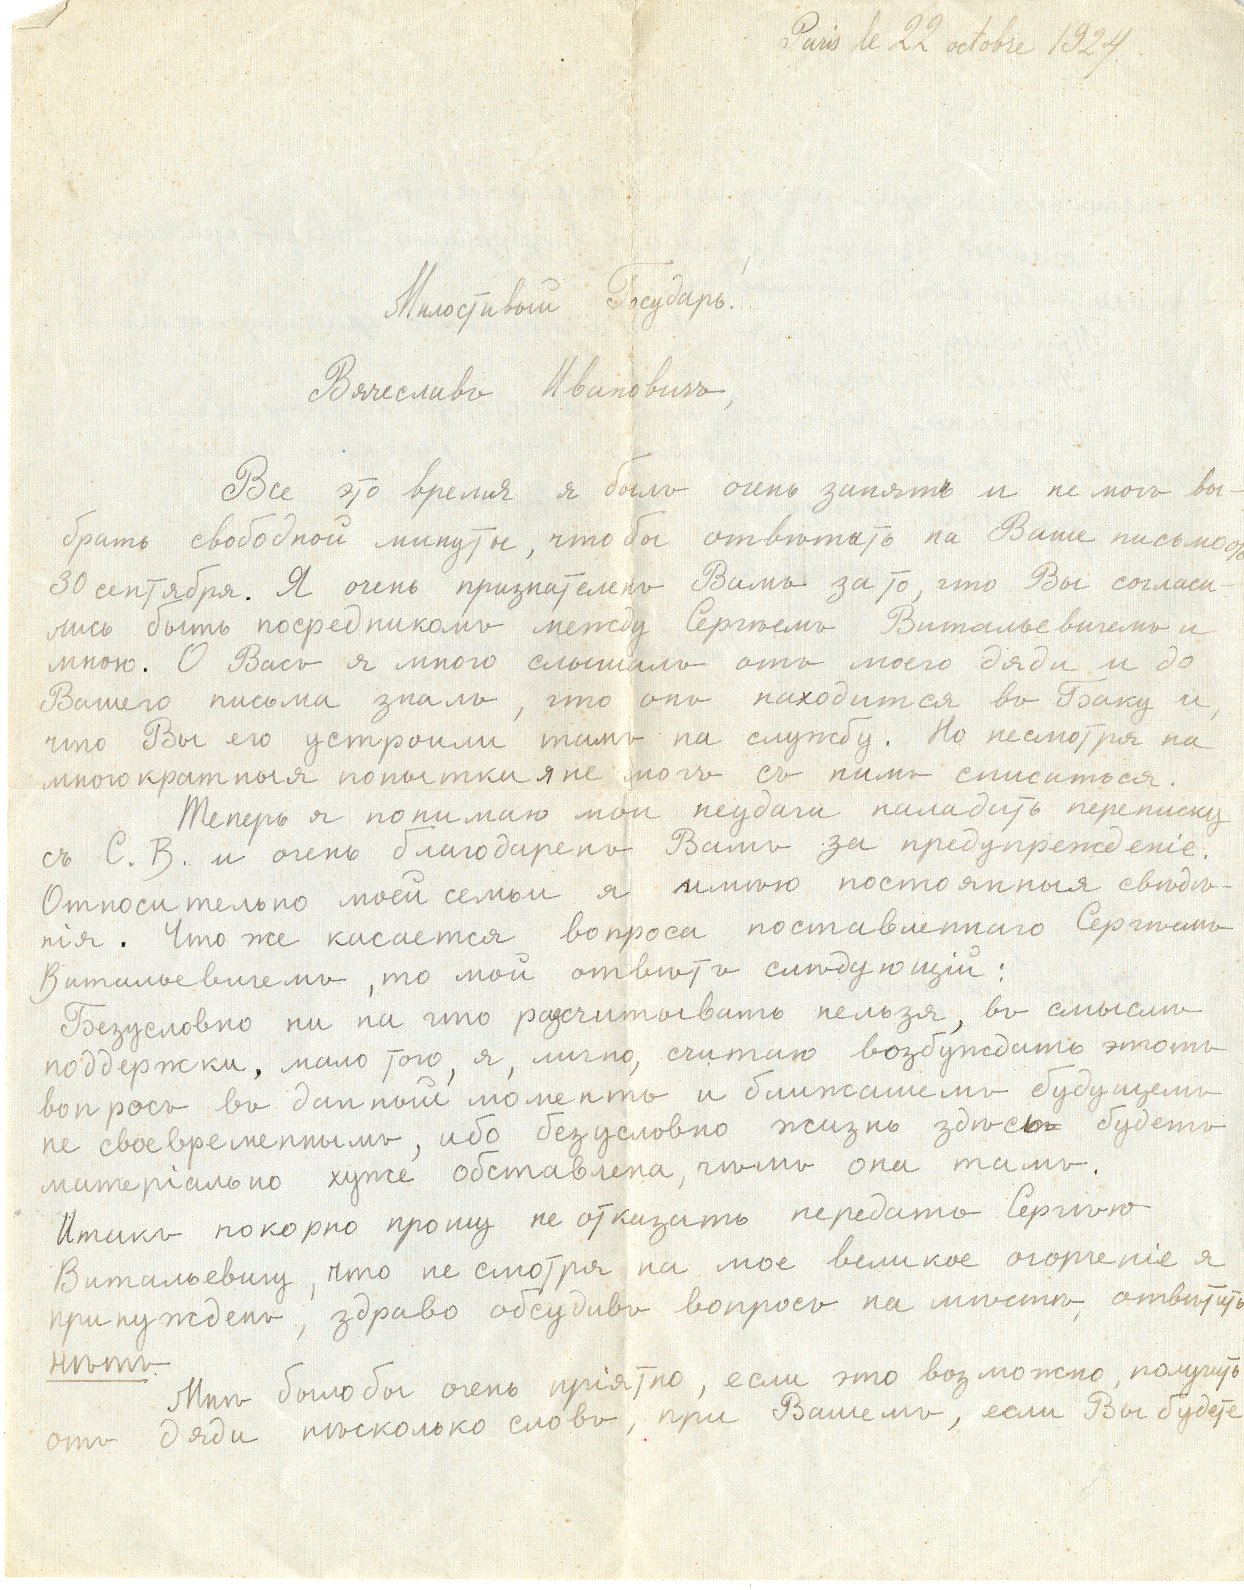 Paris le 22 octobre 1924.
Милостивый Государь!
Вячеславъ Ивановичъ,
Все это время я былъ очень занятъ и не могъ вы-
брать свободной минуты, чтобы отвѣтить на Ваше письмо отъ
30 сентября. Я очень признателенъ Вамъ за то, что Вы согласи-
лись быть посредникомъ между Сергѣемъ Витальевичемъ и
мною. О Васъ я много слышалъ отъ моего дяди и до
Вашего письма зналъ, что онъ находится въ Баку и,
что Вы его устроили тамъ на службу. Но несмотря на
многократныя попытки я не могъ съ нимъ списаться.
Теперь я понимаю мои неудачи наладить переписку
съ С. В. и очень благодаренъ Вамъ за предупрежденіе.
Относительно моей семьи я имѣю постоянныя свѣдѣ-
нія. Что же касается вопроса поставленнаго Сергѣемъ
Витальевичемъ, то мой отвѣтъ слѣдующій:
Безусловно ни на что расчитывать нельзя, въ смыслѣ
поддержки, мало того, я, лично, считаю возбуждать этотъ
вопросъ въ данный моментъ и ближашемъ будущемъ
не своевременнымъ, ибо безусловно жизнь здѣсь будетъ
матеріально хуже обставлена, чѣмъ она тамъ.
Итакъ покорно прошу не отказать передать Сергѣю
Витальевичу, что не смотря на мое великое огорченіе я
принужденъ, здраво обсудивъ вопросъ на мѣстѣ, отвѣтить
нѣтъ.
Мнѣ было бы очень пріятно, если это возможно, получить
отъ дяди нѣсколько словъ, при Вашемъ, если Вы будете